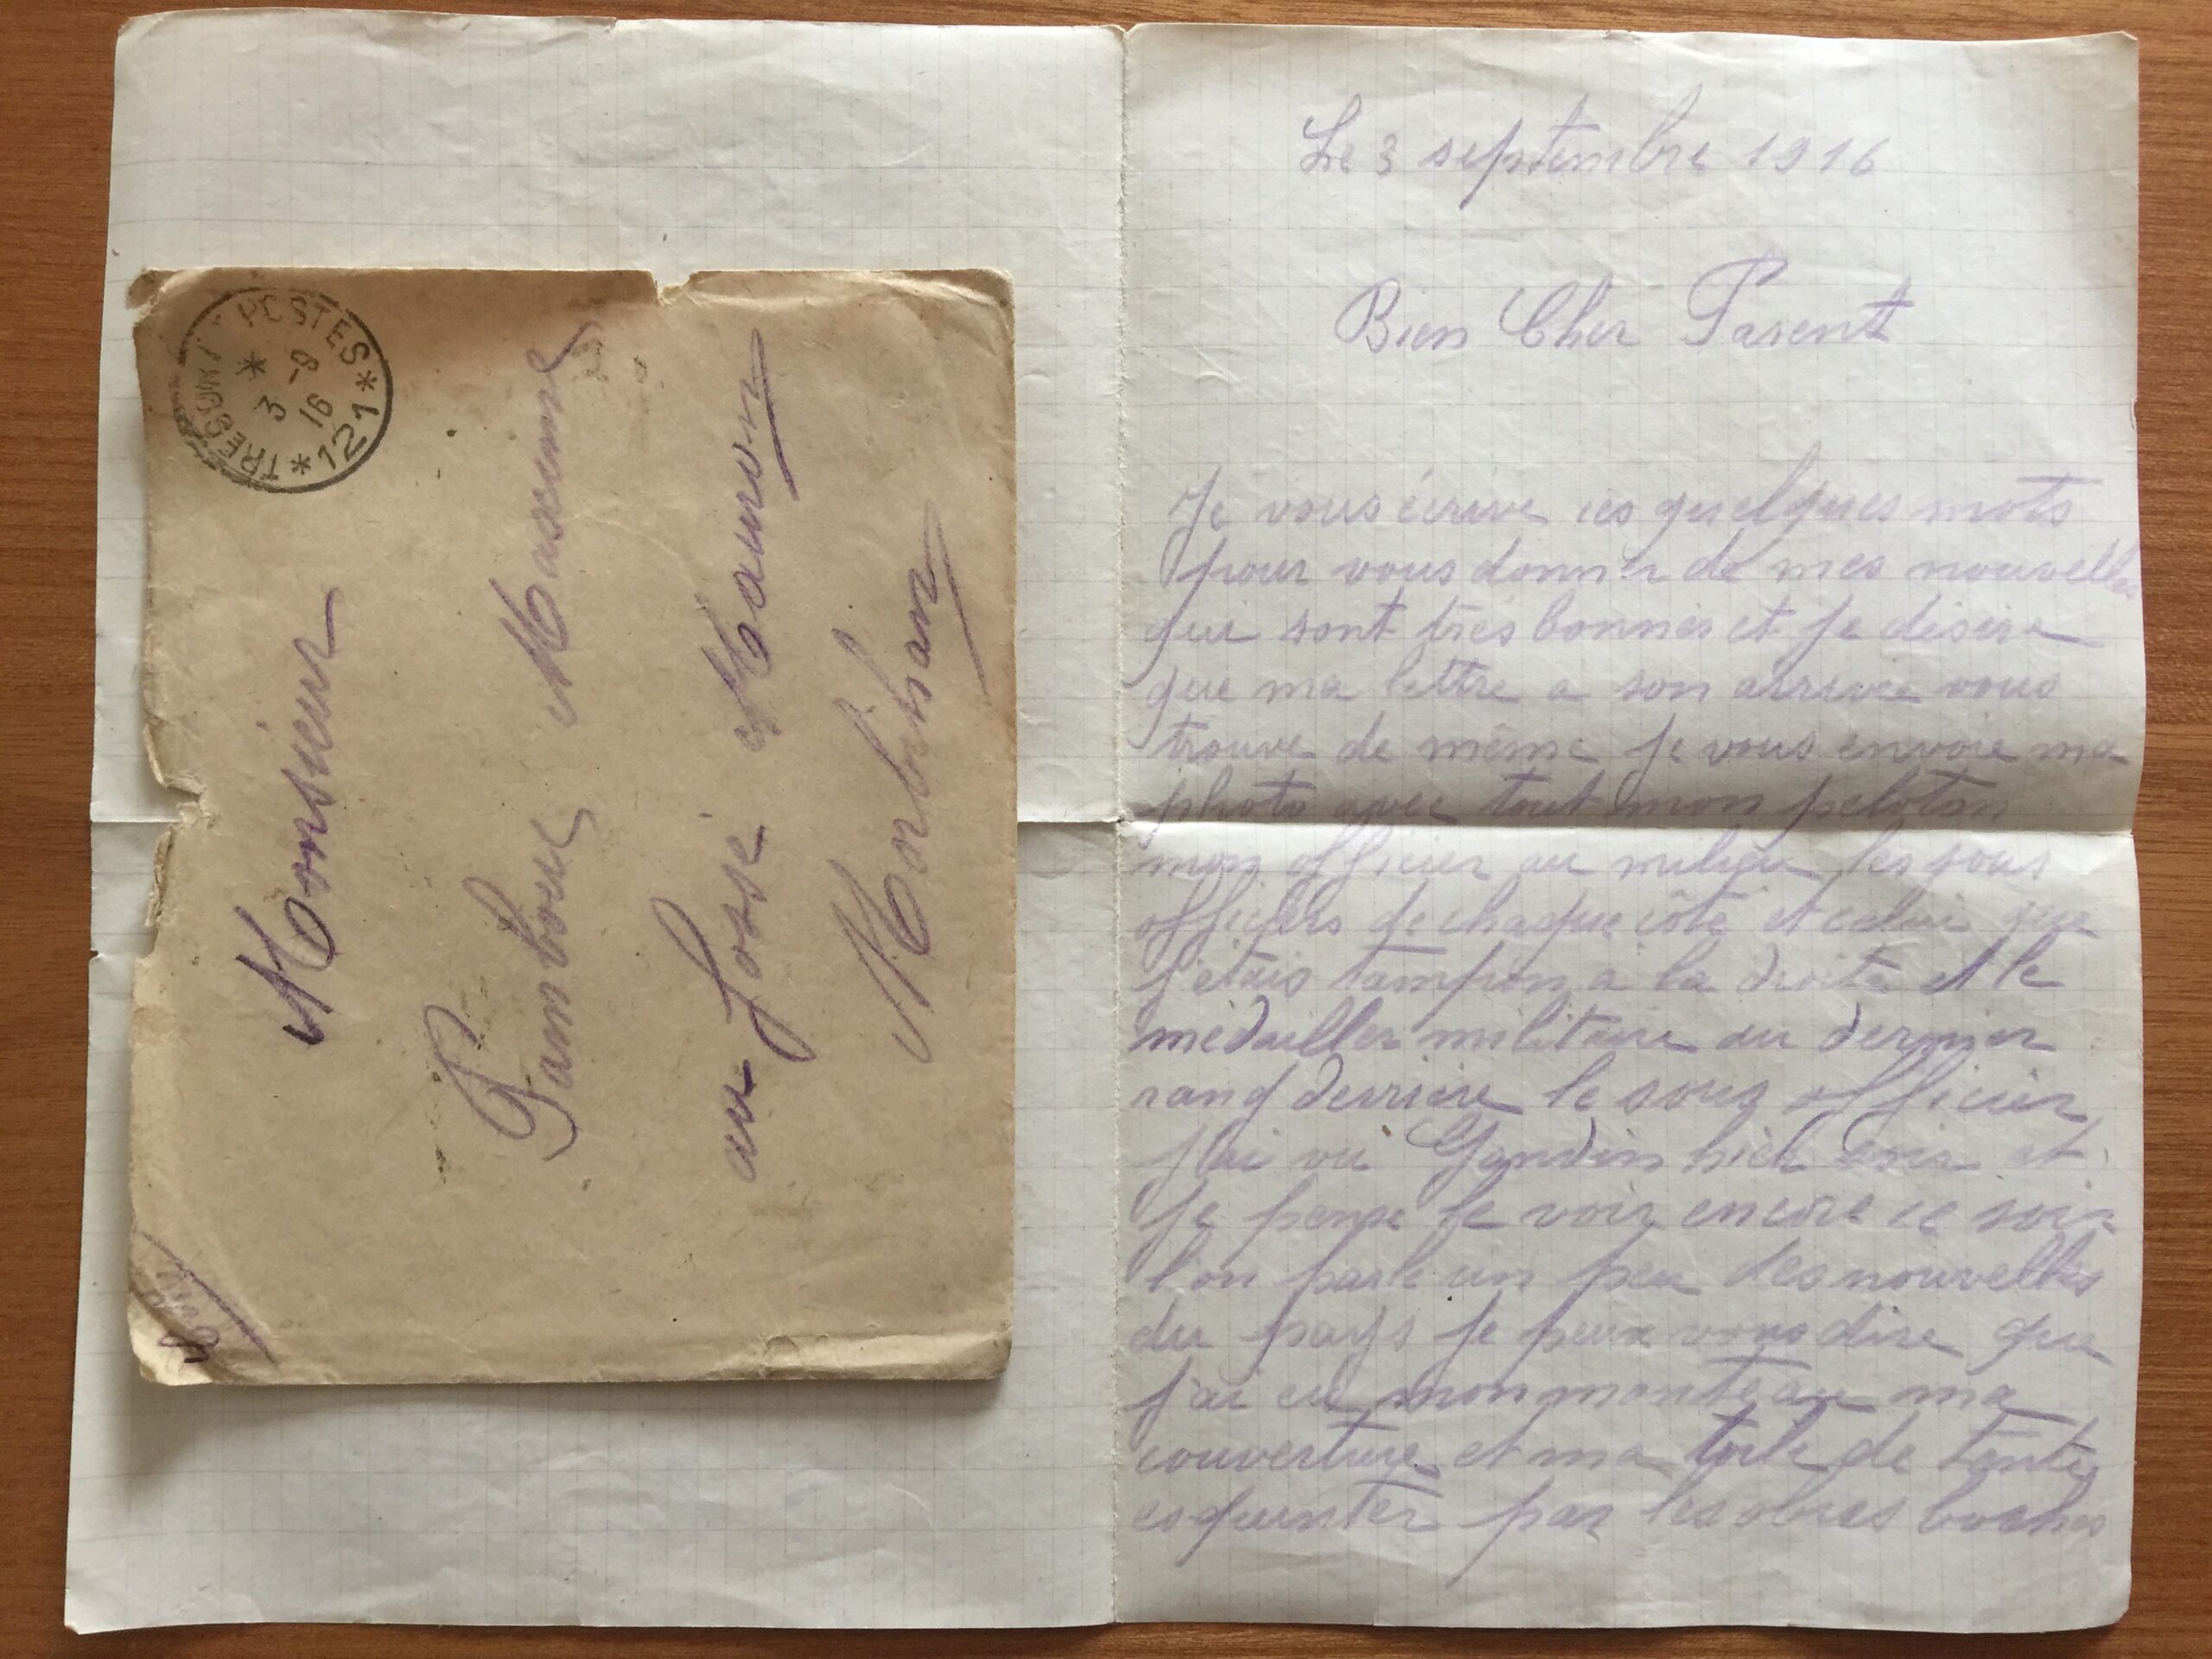 TRESOR ET POSTES
* 121 *
3 -9
16
Monsieur
Pamboue Maxime
au fossé Mauron
Morbihan
Le 3 septembre 1916
Bien Cher Parent
Je vous écrive ces quelques mots
pour vous donner de mes nouvelles
qui sont très bonnes et je désire
que ma lettre a son arrivée vous
trouve de même je vous envoie ma
photo avec tout mon peloton
mon officier au milieu les sous
officiers de chaque côté et celui que
j'étais tampon a la droite et le
médailler militaire au dernier
rang derrière le sous officier
j'ai vu Gandin hier soir et
je pense le voir encore ce soir
l'on parle un peu des nouvelles
du pays je peux vous dire que
j'ai eu mon manteau ma
couverture et ma toile de tente
esquinter par les obus boches